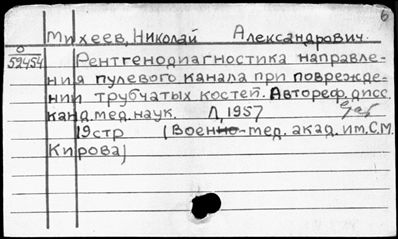 6
Михеев, Николай Александрович.
0
52454
Рентгенодиагностика направле-
ния пулевого канала при поврежде-
нии трубчатых костей. Автореф. дисс.
канд. мед. наук. Л, 1957
19 стр (Военно-мед. акад. им. С.М.
Кирова)